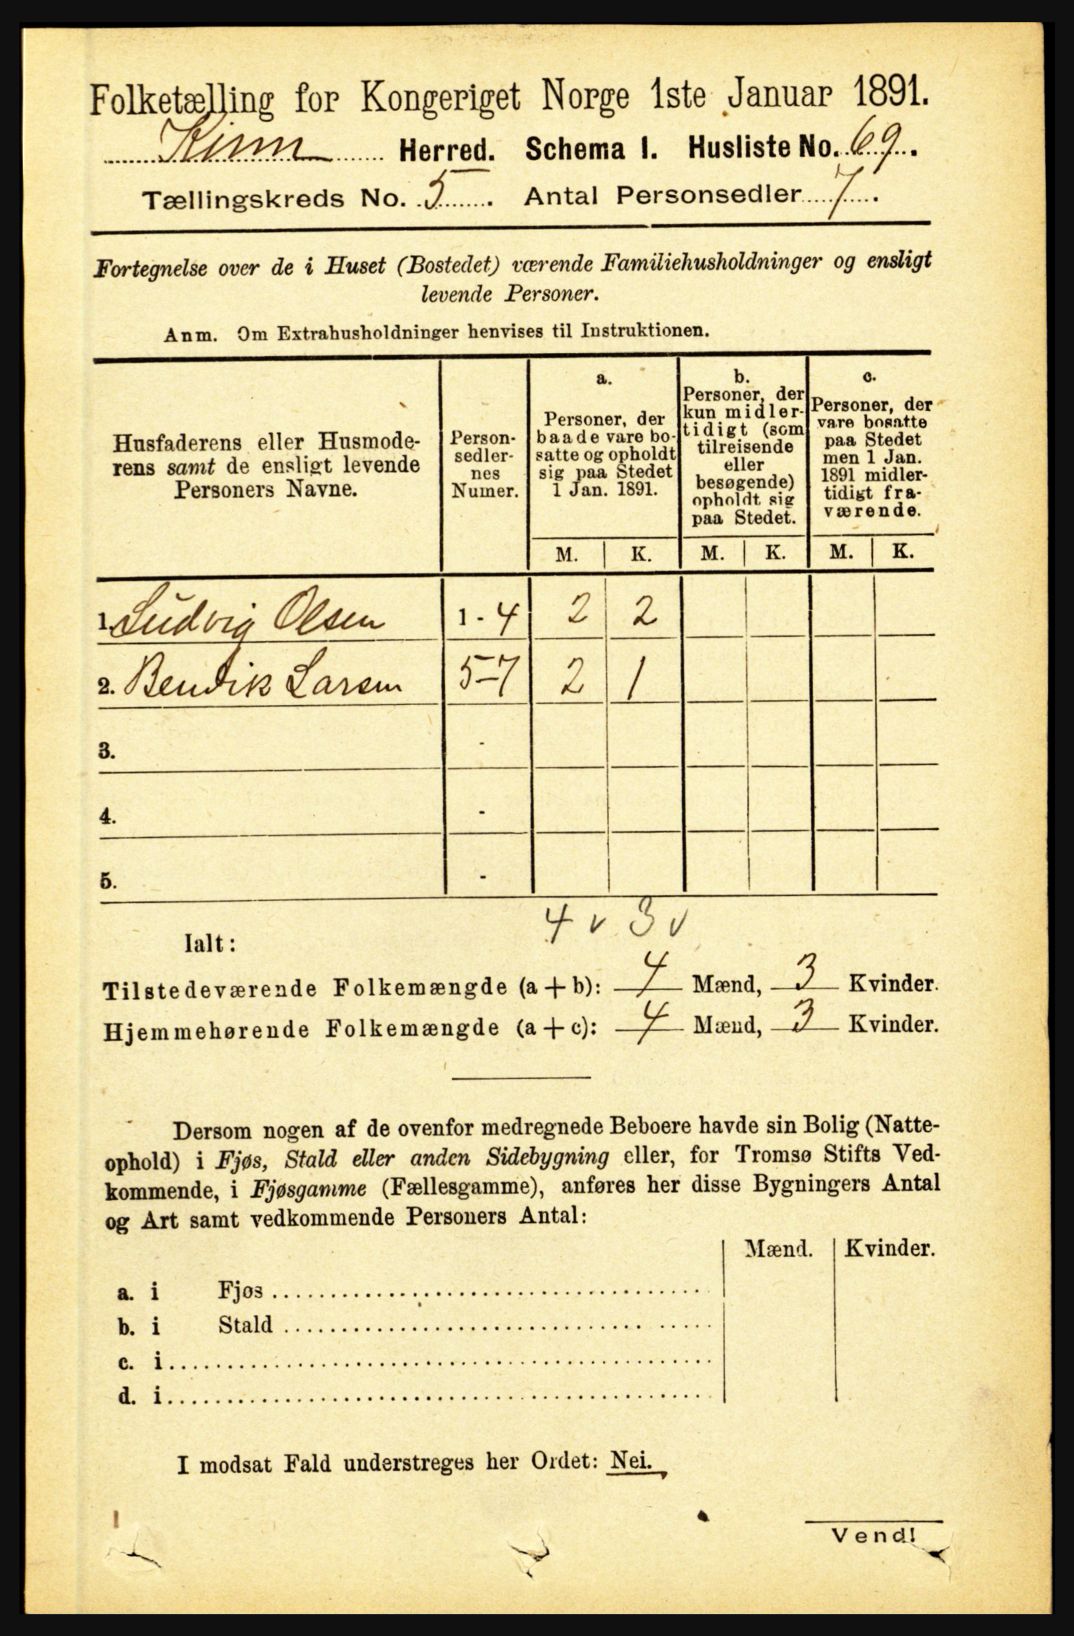 Folketælling for Kongeriget Norge 1ste Januar 1891.
Kinn Herred. Schema I. Husliste No. 69.
Tællingskreds No. 5. Antal Personsedler 7.
Fortegnelse over de i Huset (Bostedet) værende Familiehusholdninger og ensligt
levende Personer.
Anm. Om Extrahusholdninger henvises til Instruktionen.
Husfaderens eller Husmode-
rens samt de ensligt levende
Personers Navne.
Person-
sedler-
nes
Numer.
a.
Personer, der
baade vare bo-
satte og opholdt
sig paa Stedet
1 Jan. 1891.
b.
Personer, der
kun midler-
tidigt (som
tilreisende
eller
besøgende)
opholdt sig
paa Stedet.
c.
Personer, der
vare bosatte
paa Stedet
men 1 Jan.
1891 midler-
tidigt fra-
værende.
M. K. M. K. M. K.
1. Ludvig Olsen 1 - 4 2 2
2. Bendik Larsen 5-7 2 1
3. -
4. -
5. -
4 v 3 v
Ialt:
Tilstedeværende Folkemængde (a + b): 4 Mænd, 3 Kvinder.
Hjemmehørende Folkemængde (a + c): 4 Mænd, 3 Kvinder.
Dersom nogen af de ovenfor medregnede Beboere havde sin Bolig (Natte-
ophold) i Fjøs, Stald eller anden Sidebygning eller, for Tromsø Stifts Ved-
kommende, i Fjøsgamme (Fællesgamme), anføres her disse Bygningers Antal
og Art samt vedkommende Personers Antal:
Mænd. Kvinder.
a. i Fjøs
b. i Stald
c. i
d. i
I modsat Fald understreges her Ordet: Nei.
Vend!